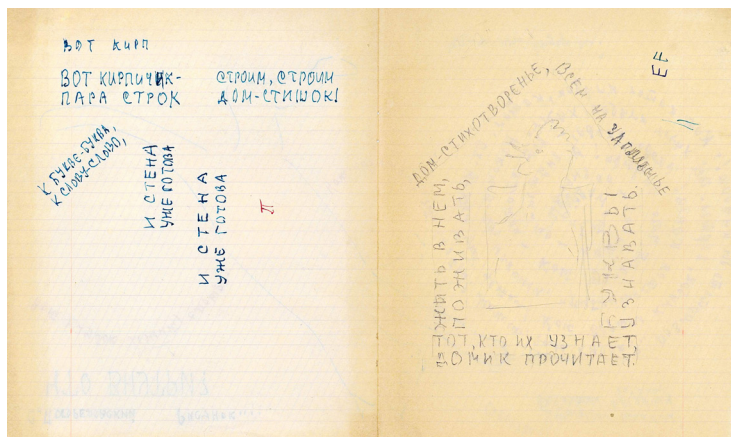 ВОТ КИРП
ВОТ КИРПИЧИК-
ПАРА СТРОК
СТРОИМ, СТРОИМ
ДОМ-СТИШОК!
К БУКВЕ-БУКВА,
К СЛОВУ-СЛОВО,
И СТЕНА
УЖЕ ГОТОВА
И СТЕНА
УЖЕ ГОТОВА
П
EF
П
ДОМ-СТИХОТВОРЕНЬЕ, ВСЕМ НА
ЖИТЬ В НЕМ,
ПОЖИВАТЬ,
БУКВЫ
УЗНАВАТЬ.
ТОТ, КТО ИХ УЗНАЕТ,
ДОМИК ПРОЧИТАЕТ.